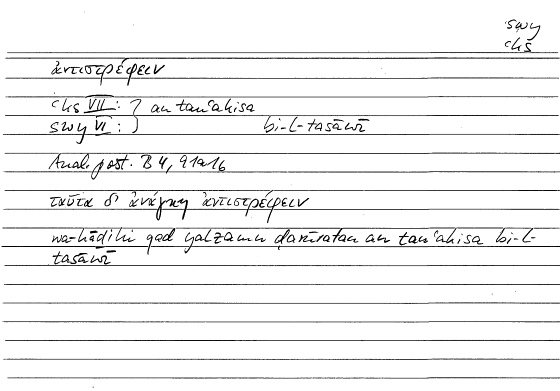 swy
ʿks
ἀντιστρέφειν
ʿks VII : } an tanʿakisa
swy VI : } bi-l-tasāwī
Anal. post. B 4, 91a16
ταῦτα δ' ἀνάγκη ἀντιστρέφειν
wa-hāḏihi qad yalzamu ḍarūratan an tanʿakisa bi-l-
tasāwī